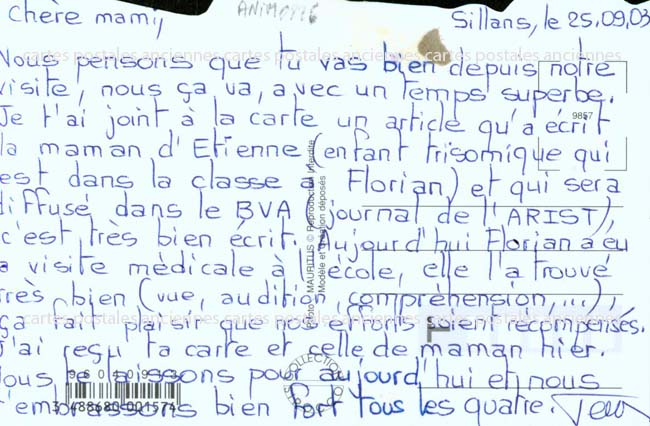 ANIM0996
Chère mamy,
Sillans, le 25.09.03
Nous pensons que tu vas bien depuis notre
visite, nous ça va, avec un temps superbe.
Je t'ai joint à la carte un article qu'a écrit
9857
la maman d'Etienne (enfant trisomique qui
est dans la classe à Florian) et qui sera
diffusé dans le BVA (journal de l'ARIST),
c'est très bien écrit. Aujourd'hui Florian a eu
la visite médicale à l'école, elle l'a trouvé
très bien (vue, audition, compréhension,...),
ça fait plaisir que nos efforts soient récompensés.
J'ai reçu ta carte et celle de maman hier.
Nous te laissons pour aujourd'hui et nous
t'embrassons bien fort tous les quatre.
cartes postales anciennes cartes postales anciennes cartes postales anciennes
cartes postales anciennes cartes postales anciennes cartes postales anciennes
MAURITIUS © Reproduction interdite
Modèle et déposés
COLLECTION
3 488680 001574